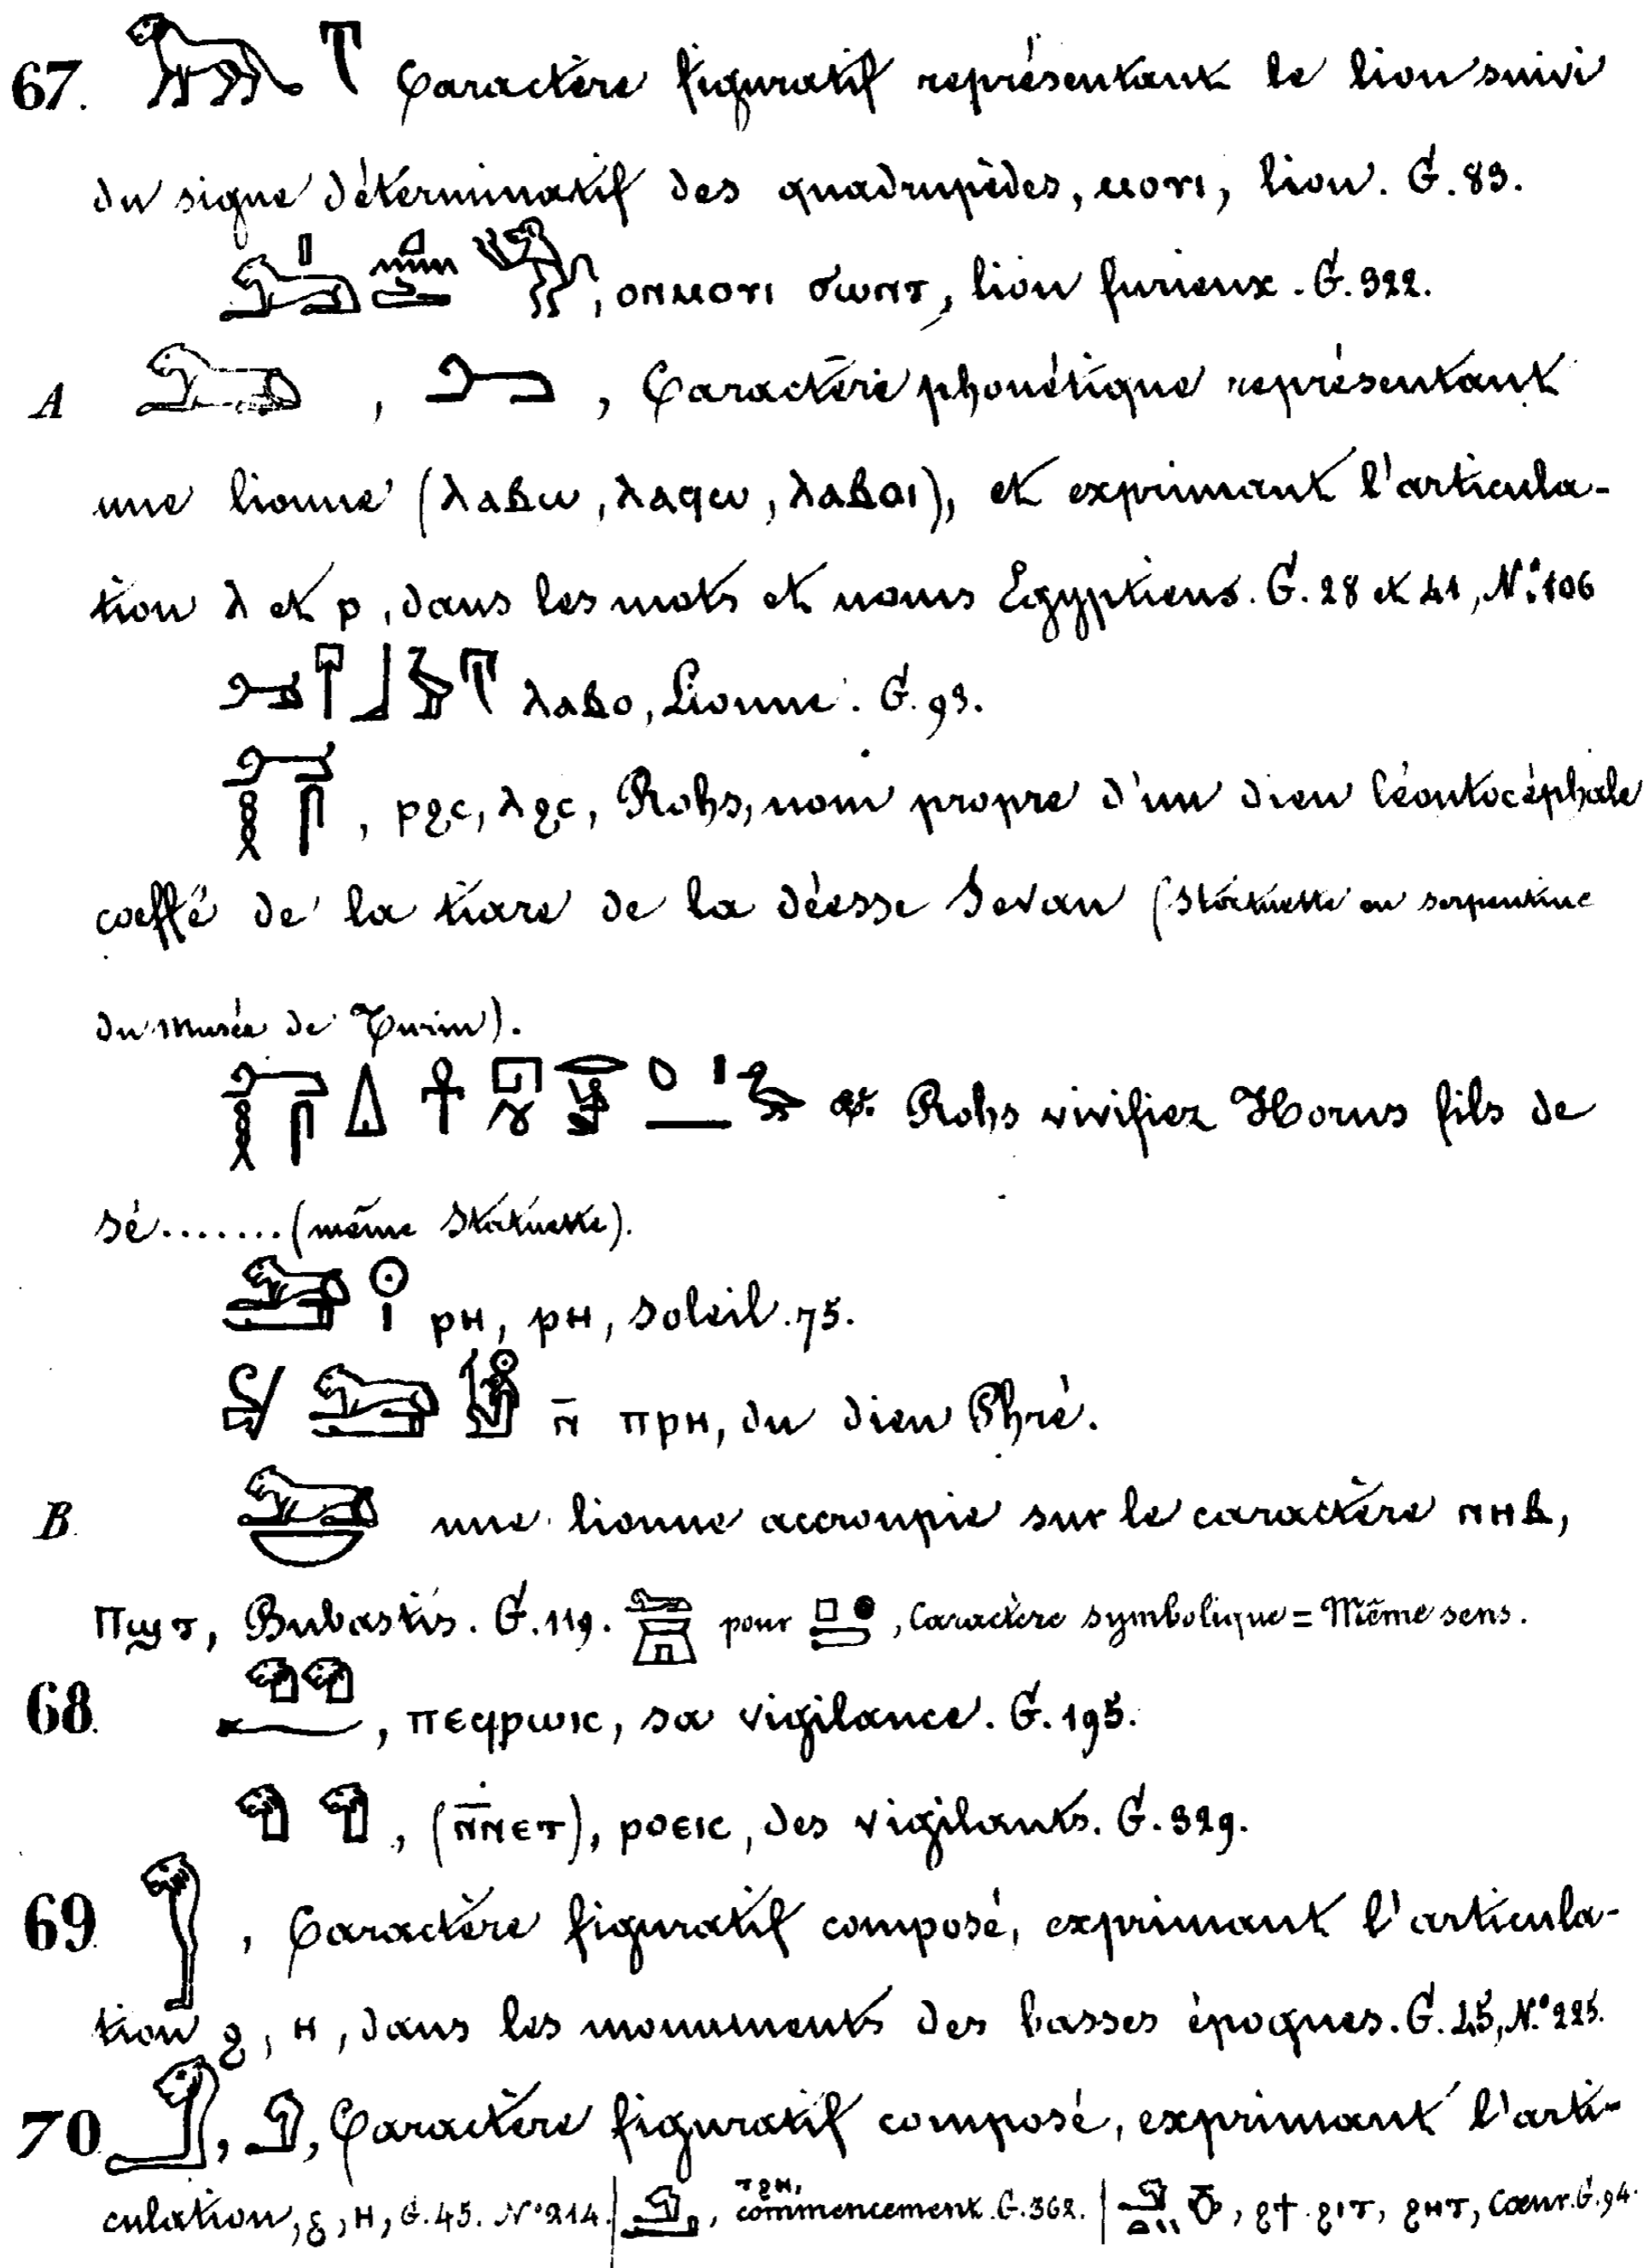 67. Caractère figuratif représentant le lion suivi
du signe déterminatif des quadrupèdes, ⲙⲟⲩⲓ, lion. G. 83.
, ⲟⲛⲙⲟⲩⲓ ϭⲱⲛⲧ, lion furieux. G. 322.
A , , Caractère phonétique représentant
une lionne (ⲗⲁⲃⲱ, ⲗⲁϥⲱ, ⲗⲁⲃⲟⲓ), et exprimant l'articula-
tion ⲗ et ⲣ, dans les mots et noms Egyptiens. G. 28 et 41, N.° 106
ⲗⲁⲃⲟ, Lionne. G. 93.
, ⲣϩⲥ, ⲗϩⲥ, Rohs, nom propre d'un dieu léontocéphale
coeffé de la tiare de la déesse Sevan (Statuette en serpentine
du Musée de Turin).
Rohs vivifiez Horus fils de
Sé........(même Statuette).
ⲣⲏ, ⲣⲏ, Soleil. 75.
ⲛ̄ ⲡⲣⲏ, du dieu Phré.
B. une lionne accroupie sur le caractère ⲛⲏⲃ,
ⲡϣⲧ, Bubastis. G. 119. pour , Caractère symbolique = Même sens.
68. , ⲡⲉϥⲣⲱⲓⲥ, sa vigilance. G. 195.
, (ⲛ̄ⲛⲉⲧ), ⲣⲟⲉⲓⲥ, des vigilants. G. 329.
69. , Caractère figuratif composé, exprimant l'articula-
tion ϩ, ⲏ, dans les monuments des basses époques. G. 45, N.° 225.
70 , , Caractère figuratif composé, exprimant l'arti-
culation, ϩ, ⲏ, G. 45. N° 214. | , ⲧϩⲏ, commencement. G. 362. | , ϩϯ. ϩⲓⲧ, ϩⲏⲧ, Cœur. G. 94.